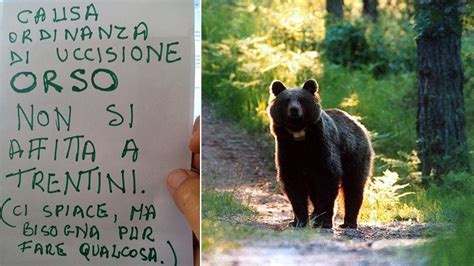 CAUSA
ORDINANZA
DI UCCISIONE
ORSO
NON SI
AFFITTA A
TRENTINI.
(CI SPIACE, MA
BISOGNA PUR
FARE QUALCOSA.)